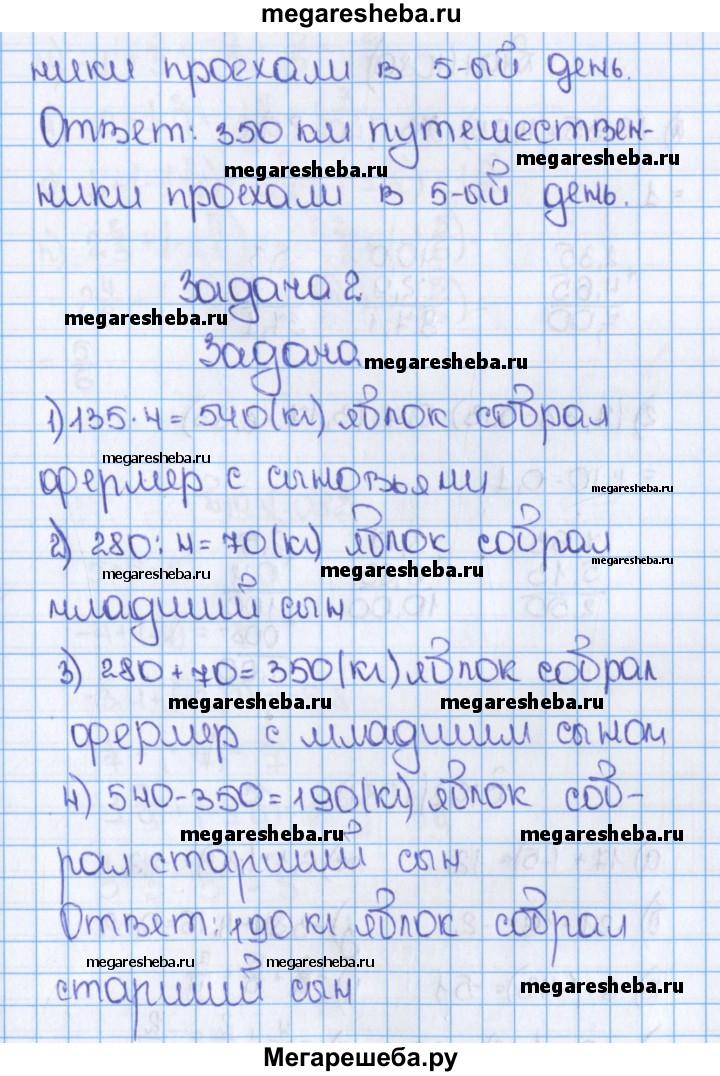 megaresheba.ru
ники проехали в 5-ый день.
Ответ: 350 км путешествен-
megaresheba.ru megaresheba.ru
ники проехали в 5-ый день.
Задача 2
megaresheba.ru
Задача megaresheba.ru
1) 135·4=540(кг) яблок собрал
megaresheba.ru
фермер с сыновьями megaresheba.ru
2) 280:4=70(кг) яблок собрал
megaresheba.ru megaresheba.ru megaresheba.ru
младший сын
3) 280+70=350(кг) яблок собрал
megaresheba.ru megaresheba.ru
фермер с младшим сыном
4) 540-350=190(кг) яблок соб-
megaresheba.ru megaresheba.ru
рал старший сын
Ответ: 190 кг яблок собрал
megaresheba.ru megaresheba.ru
старший сын megaresheba.ru
Мегарешеба.ру